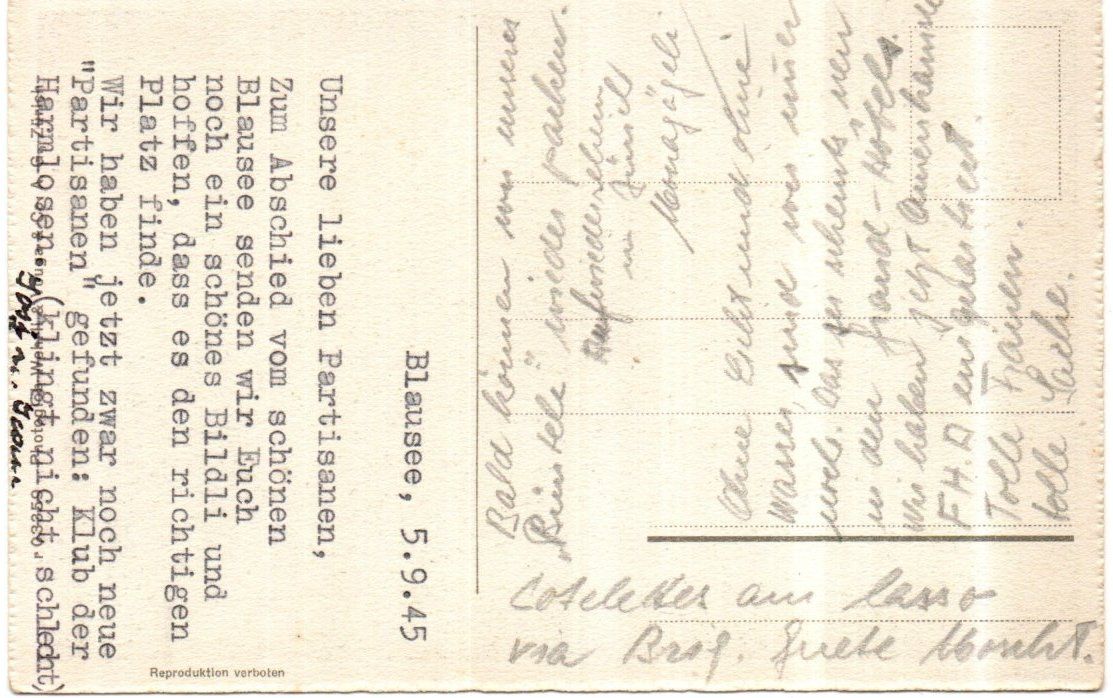 Blausee, 5.9.45
Unsere lieben Partisanen,
Zum Abschied vom schönen
Blausee senden wir Euch
noch ein schönes Bildli und
hoffen, dass es den richtigen
Platz finde.
Wir haben jetzt zwar noch neue
"Partisanen" gefunden: Klub der
Harmlosen. (klingt nicht schlecht)
Reproduktion verboten
Bald können wir unseres
"Bünteli" wieder packen.
Auf Wiedersehen
in Zürich
Ohne Licht und ohne
Wasser, sind wir immer
noch. Das ges schients wer
in den Grand-Hotels.
Wir haben jetzt
F.H.D einquartiert.
Tolle Frauen.
tolle Sache.
Coteletten am Lasso
via Brig.